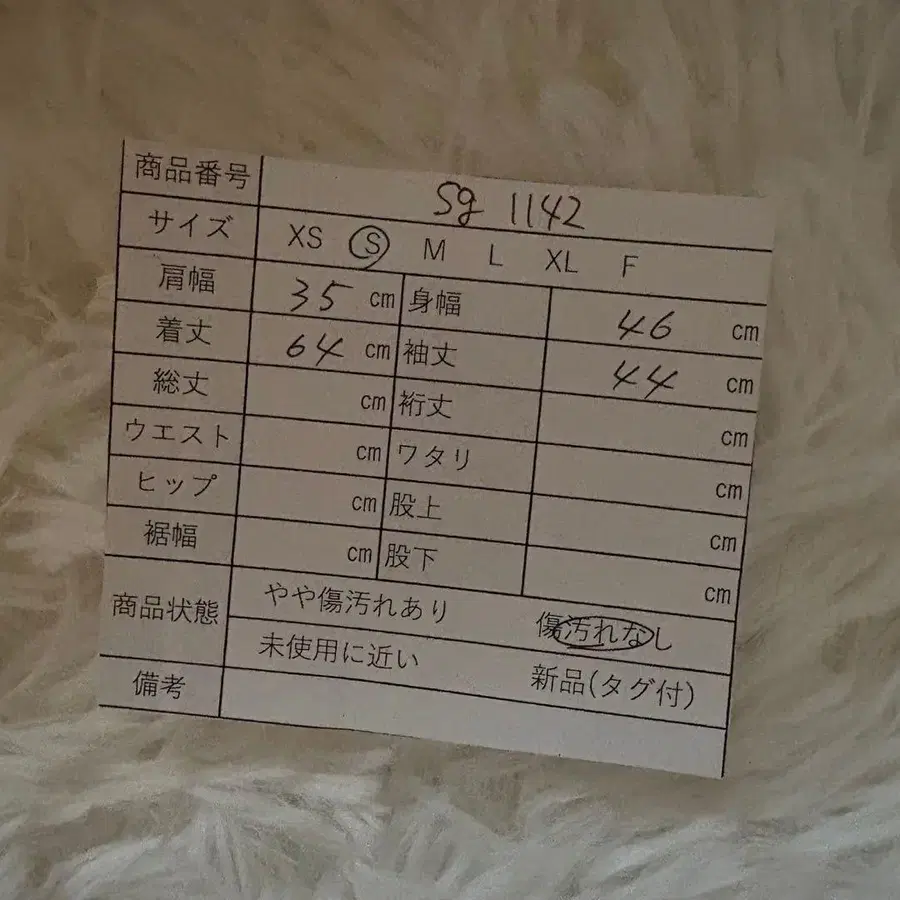 商品番号 Sg 1142
サイズ XS S M L XL F
肩幅 35 cm 身幅 46 cm
着丈 64 cm 袖丈 44 cm
総丈 cm 裄丈 cm
ウエスト cm ワタリ cm
ヒップ cm 股上 cm
裾幅 cm 股下 cm
商品状態 やや傷汚れあり 傷汚れなし
未使用に近い 新品(タグ付)
備考